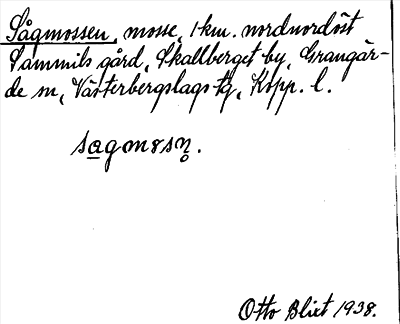 Sågmossen, mosse, 1 km. nordnordöst
Sammils gård, Skallberget by, Grangär-
de sn, Västerbergslags tg, Kopp. l.
sagmɷsn̥.
Otto Blixt 1938.